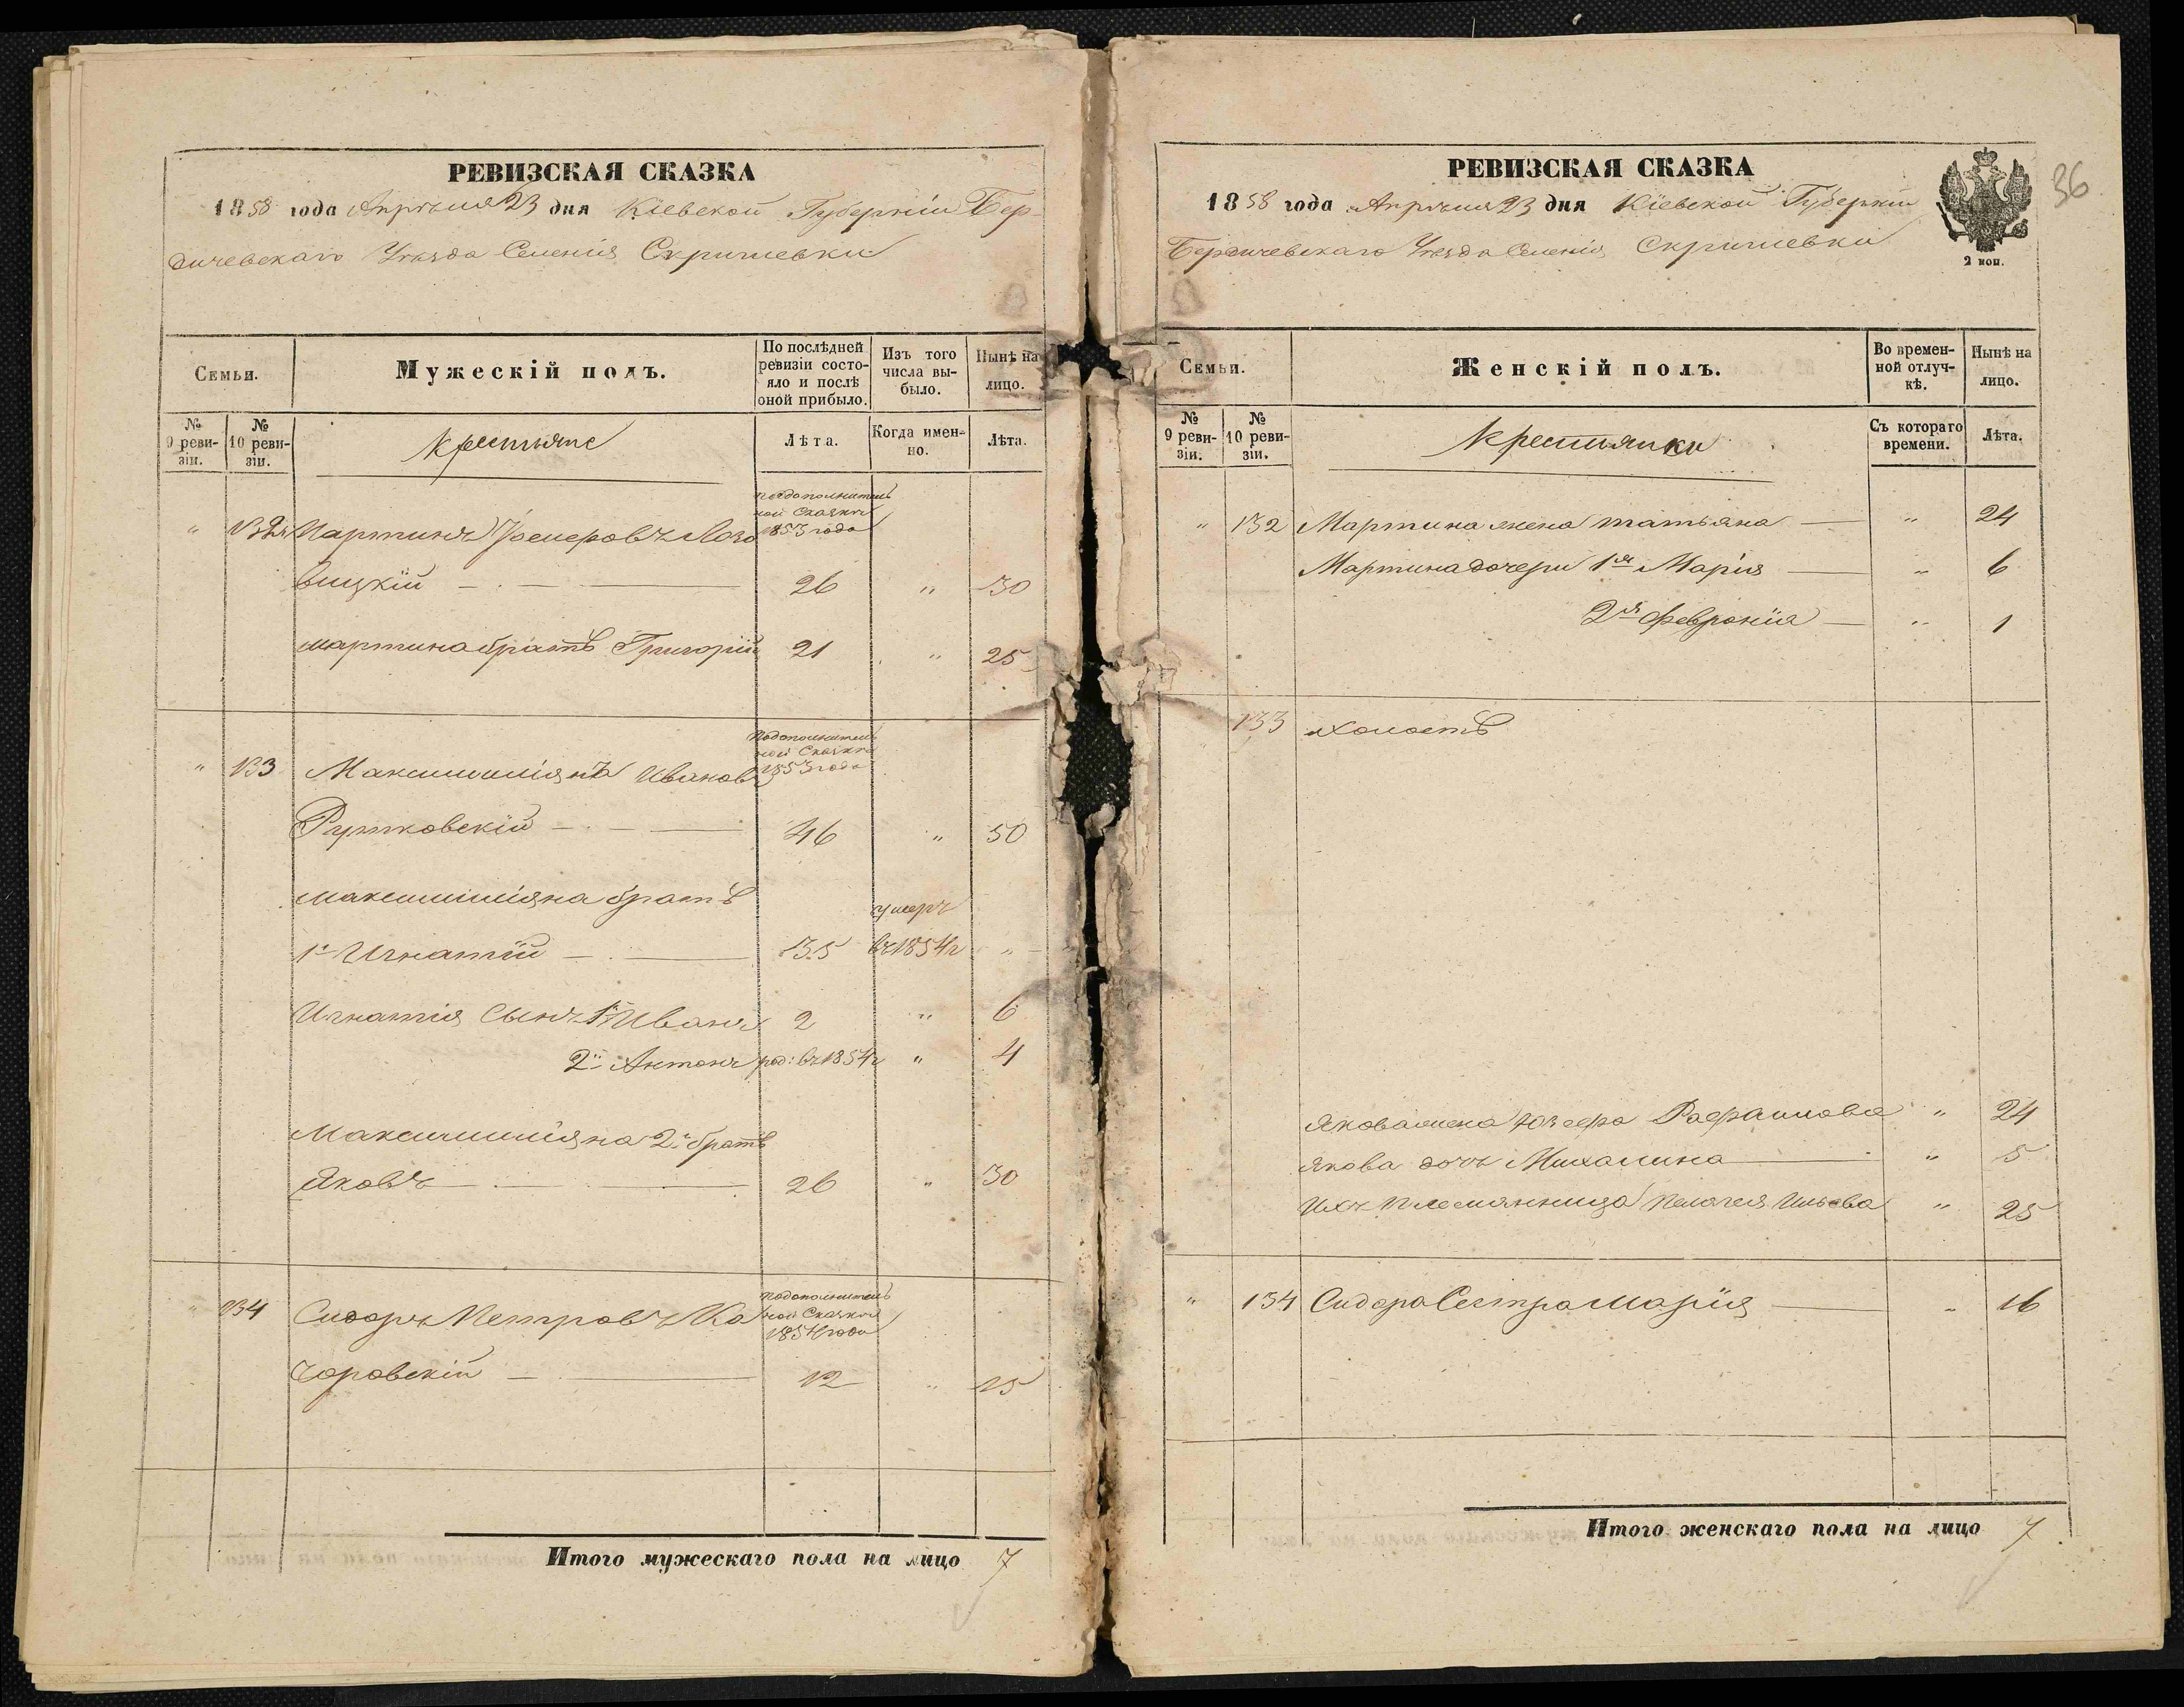 РЕВИЗСКАЯ СКАЗКА
1858 года Апреля 23 дня Кіевской Губерніи Бер-
дичевскаго Уезда Селенія Скригилевки
Семьи.
Мужескій полъ.
По послѣдней ревизіи состо-яло и послѣ оной прибыло.
Изъ того числа вы-было.
Нынѣ на лицо.
№ 9 реви-зіи.
№ 10 реви-зіи.
Крестьяне
Лѣта.
Когда имен-но.
Лѣта.
по дополнитель
ной Сказки
1853 года
" 132 Мартинъ Лозо
вицкій 26 " 30
Мартина братъ Григорій 21 " 25
по дополнитель
ной Сказки
1853 года
" 133 Максимиліянъ Ивановъ
Рутковскій 46 " 50
Максимиліяна братъ
1й Игнатій 35 умеръ въ 1854г "
Игнатія Сынъ 1й Иванъ 2 " 6
2й Антонъ род: въ 1854г " 4
Максимиліяна 2й братъ
Яковъ 26 " 30
по дополнитель
ной Сказки
1854 года
" 134 Сидоръ Петровъ Ка
чоровскій 12 " 15
Итого мужескаго пола на лицо 7
РЕВИЗСКАЯ СКАЗКА
1858 года Апреля 23 дня Кіевской Губерніи
Бердичевскаго Уезда Селенія Скригилевки
2 коп.
36
Семьи.
Женскій полъ.
Во времен-ной отлуч-кѣ.
Нынѣ на лицо.
№ 9 реви-зіи.
№ 10 реви-зіи.
Крестьянки
Съ котораго времени.
Лѣта.
" 132 Мартина жена Татьяна " 24
Мартина дочери 1я Марія " 6
2я Февронія " 1
133 Холостъ
Якова жена Юзефа Рафаилова " 24
Якова дочь Михалина " 5
Ихъ племянница Пелагея Ильева " 25
" 134 Сидора Сестра Марія " 16
Итого женскаго пола на лицо 7